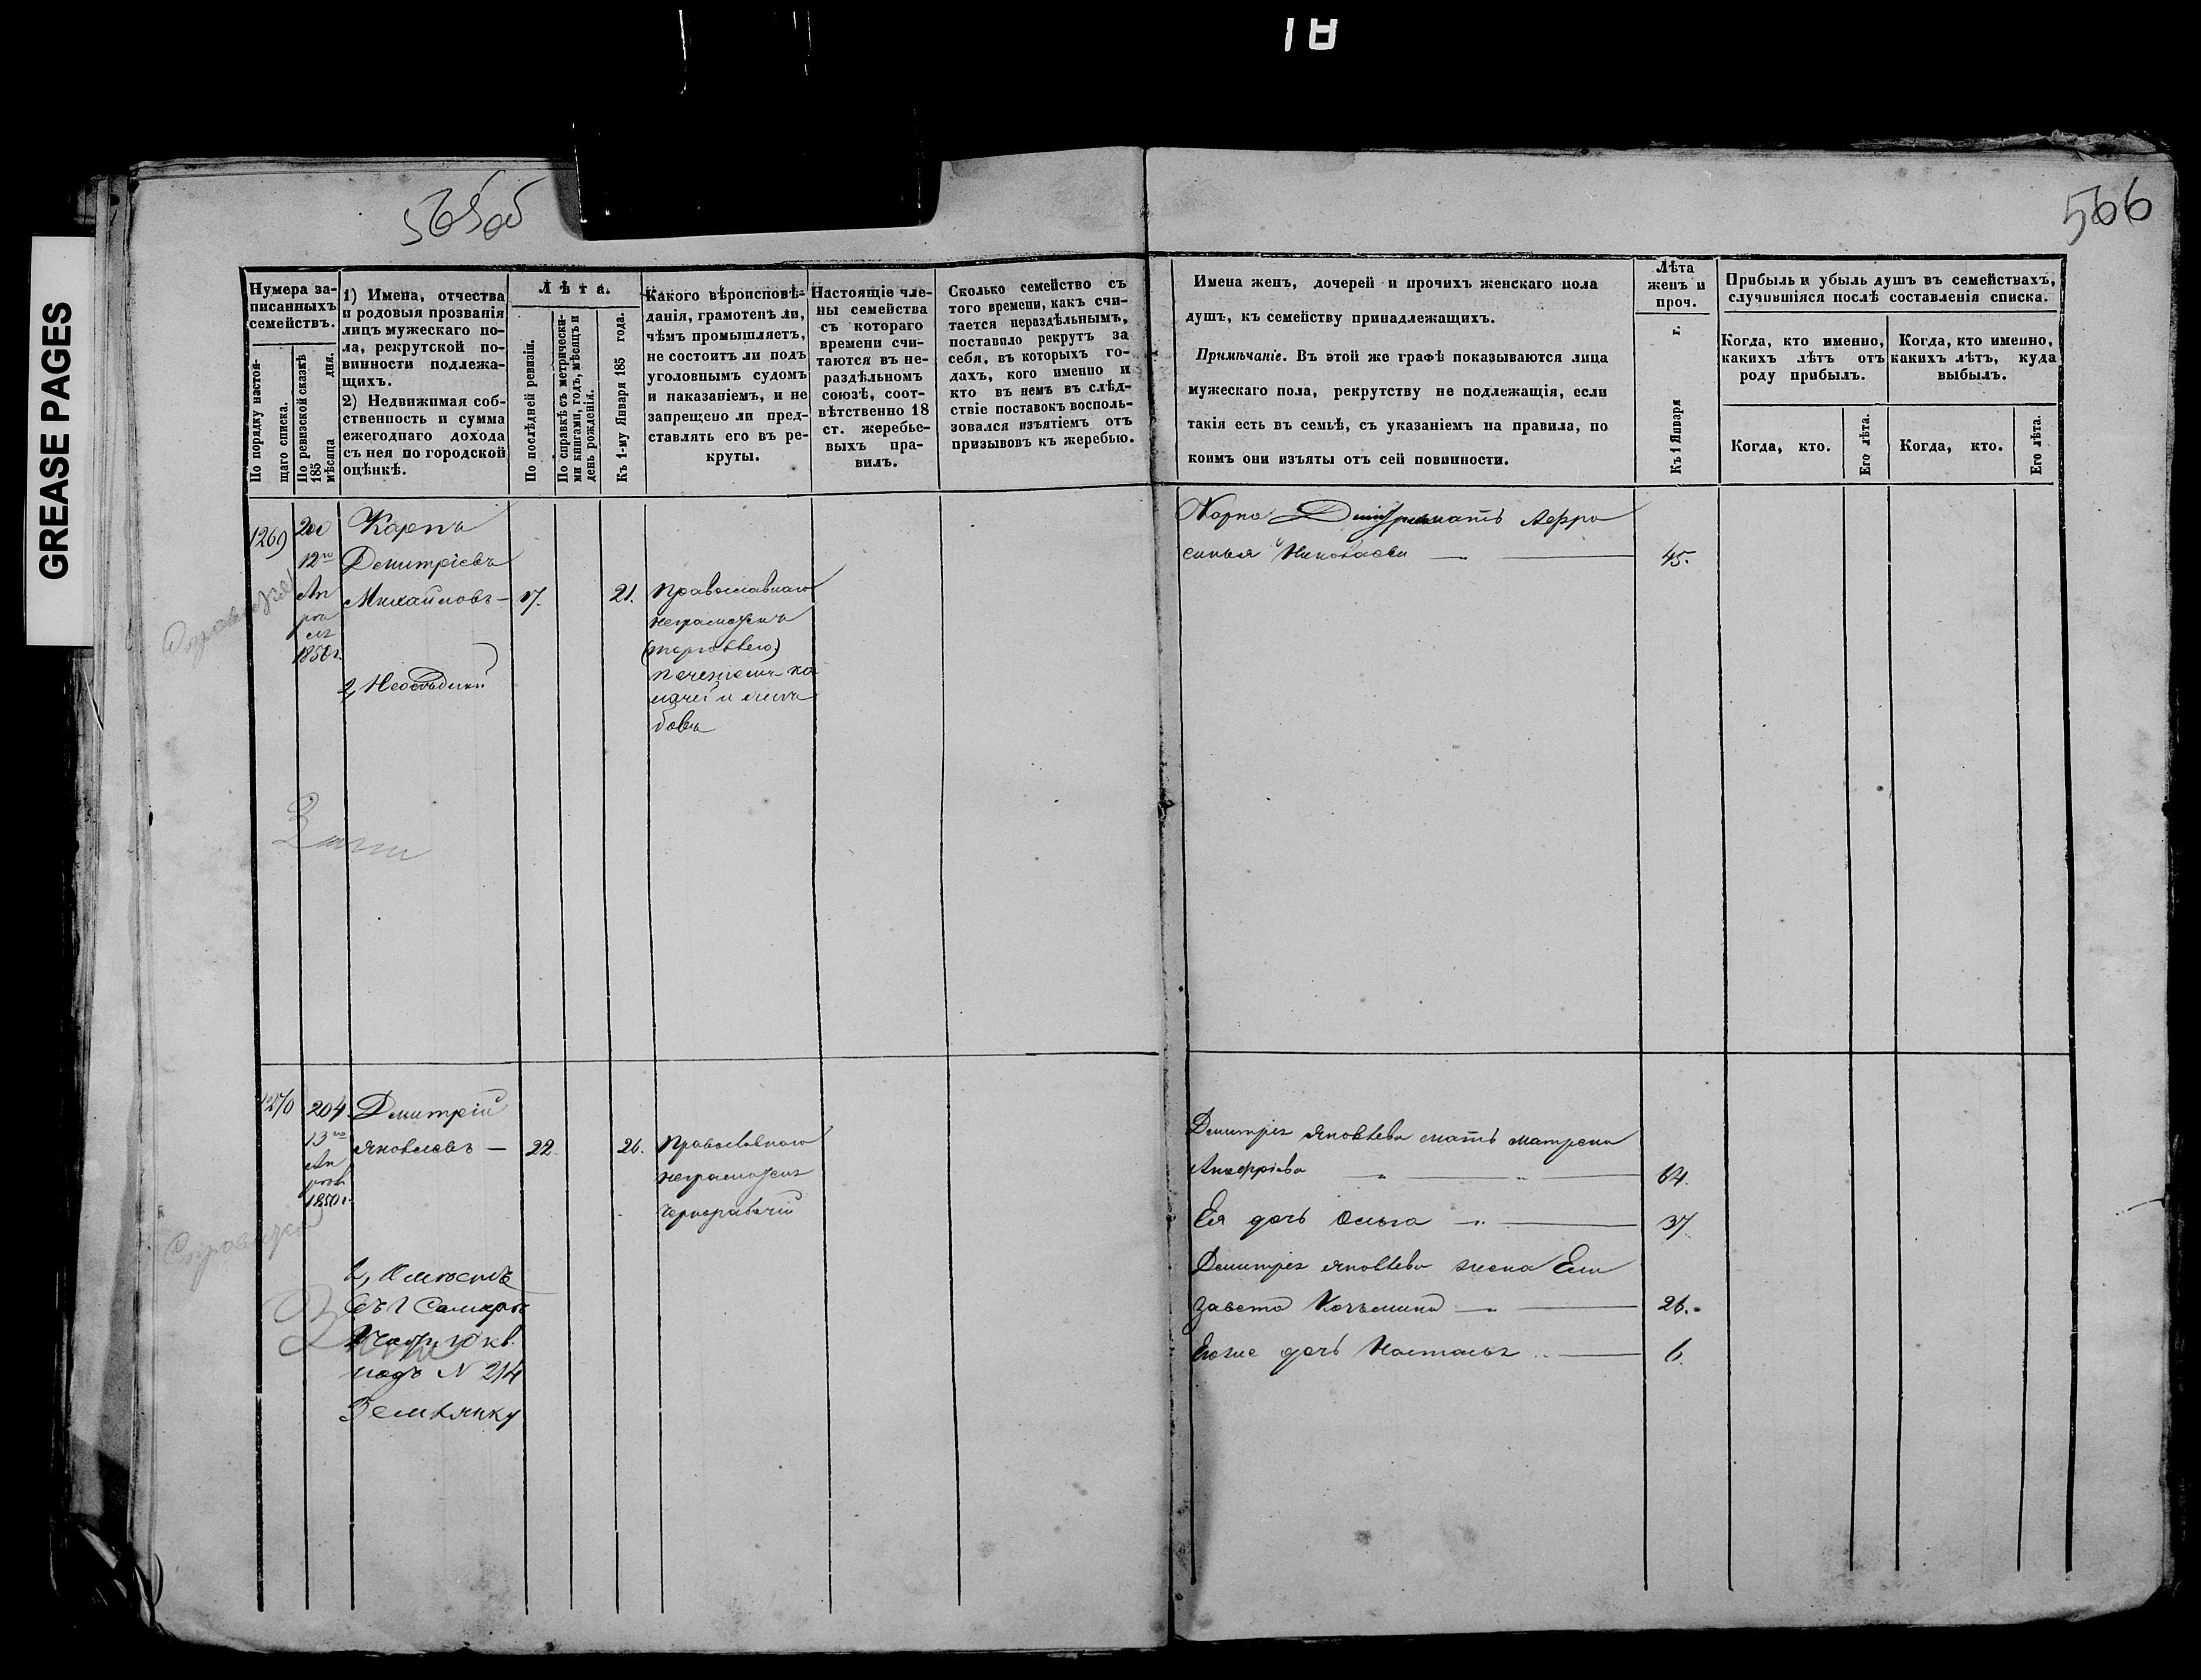 GREASE PAGES
18
565об
566
Нумера за-
писанныхъ
семействъ.
По порядку настоя-
щаго списка.
По ревизской сказкѣ
185 дня.
мѣсяца
1) Имена, отчества
и родовыя прозванія
лицъ мужескаго по-
ла, рекрутской по-
винности подлежа-
щихъ.
2) Недвижимая соб-
ственность и сумма
ежегоднаго дохода
съ нея по городской
оцѣнкѣ.
Лѣта.
По послѣдней ревизіи.
По справкѣ съ метрически-
ми книгами, годъ, мѣсяцъ и
день рожденія.
Къ 1-му Января 185 года.
Какого вѣроисповѣ-
данія, грамотенъ ли,
чѣмъ промышляетъ,
не состоитъ ли подъ
уголовнымъ судомъ
и наказаніемъ, и не
запрещено ли пред-
ставлять его въ ре-
круты.
Настоящіе чле-
ны семейства
съ котораго
времени счи-
таются въ не-
раздѣльномъ
союзѣ, соот-
вѣтственно 18
ст. жеребье-
выхъ пра-
вилъ.
Сколько семейство съ
того времени, какъ счи-
тается нераздѣльнымъ,
поставило рекрутъ за
себя, въ которыхъ го-
дахъ, кого именно и
кто въ немъ въ слѣд-
ствіе поставокъ восполь-
зовался изъятіемъ отъ
призывовъ къ жеребью.
Имена женъ, дочерей и прочихъ женскаго пола
душъ, къ семейству принадлежащихъ.
Примѣчаніе. Въ этой же графѣ показываются лица
мужескаго пола, рекрутству не подлежащія, если
такія есть въ семьѣ, съ указаніемъ на правила, по
коимъ они изъяты отъ сей повинности.
Лѣта
женъ и
проч.
Къ 1 Января г.
Прибыль и убыль душъ въ семействахъ,
случившіяся послѣ составленія списка.
Когда, кто именно,
какихъ лѣтъ отъ
роду прибылъ.
Когда, кто именно,
какихъ лѣтъ, куда
выбылъ.
Когда, кто.
Его лѣта.
Когда, кто.
Его лѣта.
1269
200
12го
Ап
ре
ля
1850г.
Карпъ
Дмитріевъ
Михайловъ — 17. 21.
Православнаго
неграмотенъ
(торговлею)
печеніемъ ка
лачей и хлѣ
бовъ
2,
Карпа Дмитр мать Аффро
синья Николаева — 45.
1270
204
13го
Ап
реля
1850г.
Дмитрій
Яковлевъ — 22 26.
Православнаго
неграмотенъ
Чернорабочій
2, Имѣетъ
въ г Самарѣ
Част, 10 кв.
подъ N 214
Землянку
Дмитрея Яковлева мать Матрена
64.
Ея дочь Ольга — 37
Дмитрея Яковлева жена Ели
завета Козьмина — 26.
дочь Настасья — 6.